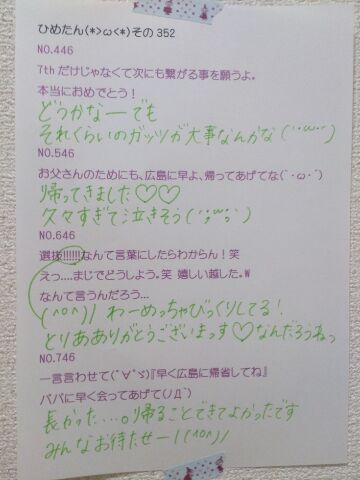 ひめたん(*>ω<*)その352
NO.446
7thだけじゃなくて次にも繋がる事を願うよ。
本当におめでとう!
どうかなーでも
それくらいのガッツが大事なんかな(´･ω･`)
NO.546
お父さんのためにも、広島に早よ、帰ってあげてな(`･ω･´)
帰ってきました♡♡
久々すぎて泣きそう(´;ω;`)
NO.646
選抜!!!!!!なんて言葉にしたらわからん!笑
えっ....まじでどうしよう。笑 嬉しい越した。w
なんて言うんだろう...
(^o^)/ わーめっちゃびっくりしてる!
とりあありがとうございまっす♡なんだろうねっ
NO.746
一言言わせて(ﾟ∀ﾟゞ)『早く広島に帰省してね』
パパに早く会ってあげて(ﾉД`)
長かった....。帰ることできてよかったです
みんなお待たせー!(^o^)/